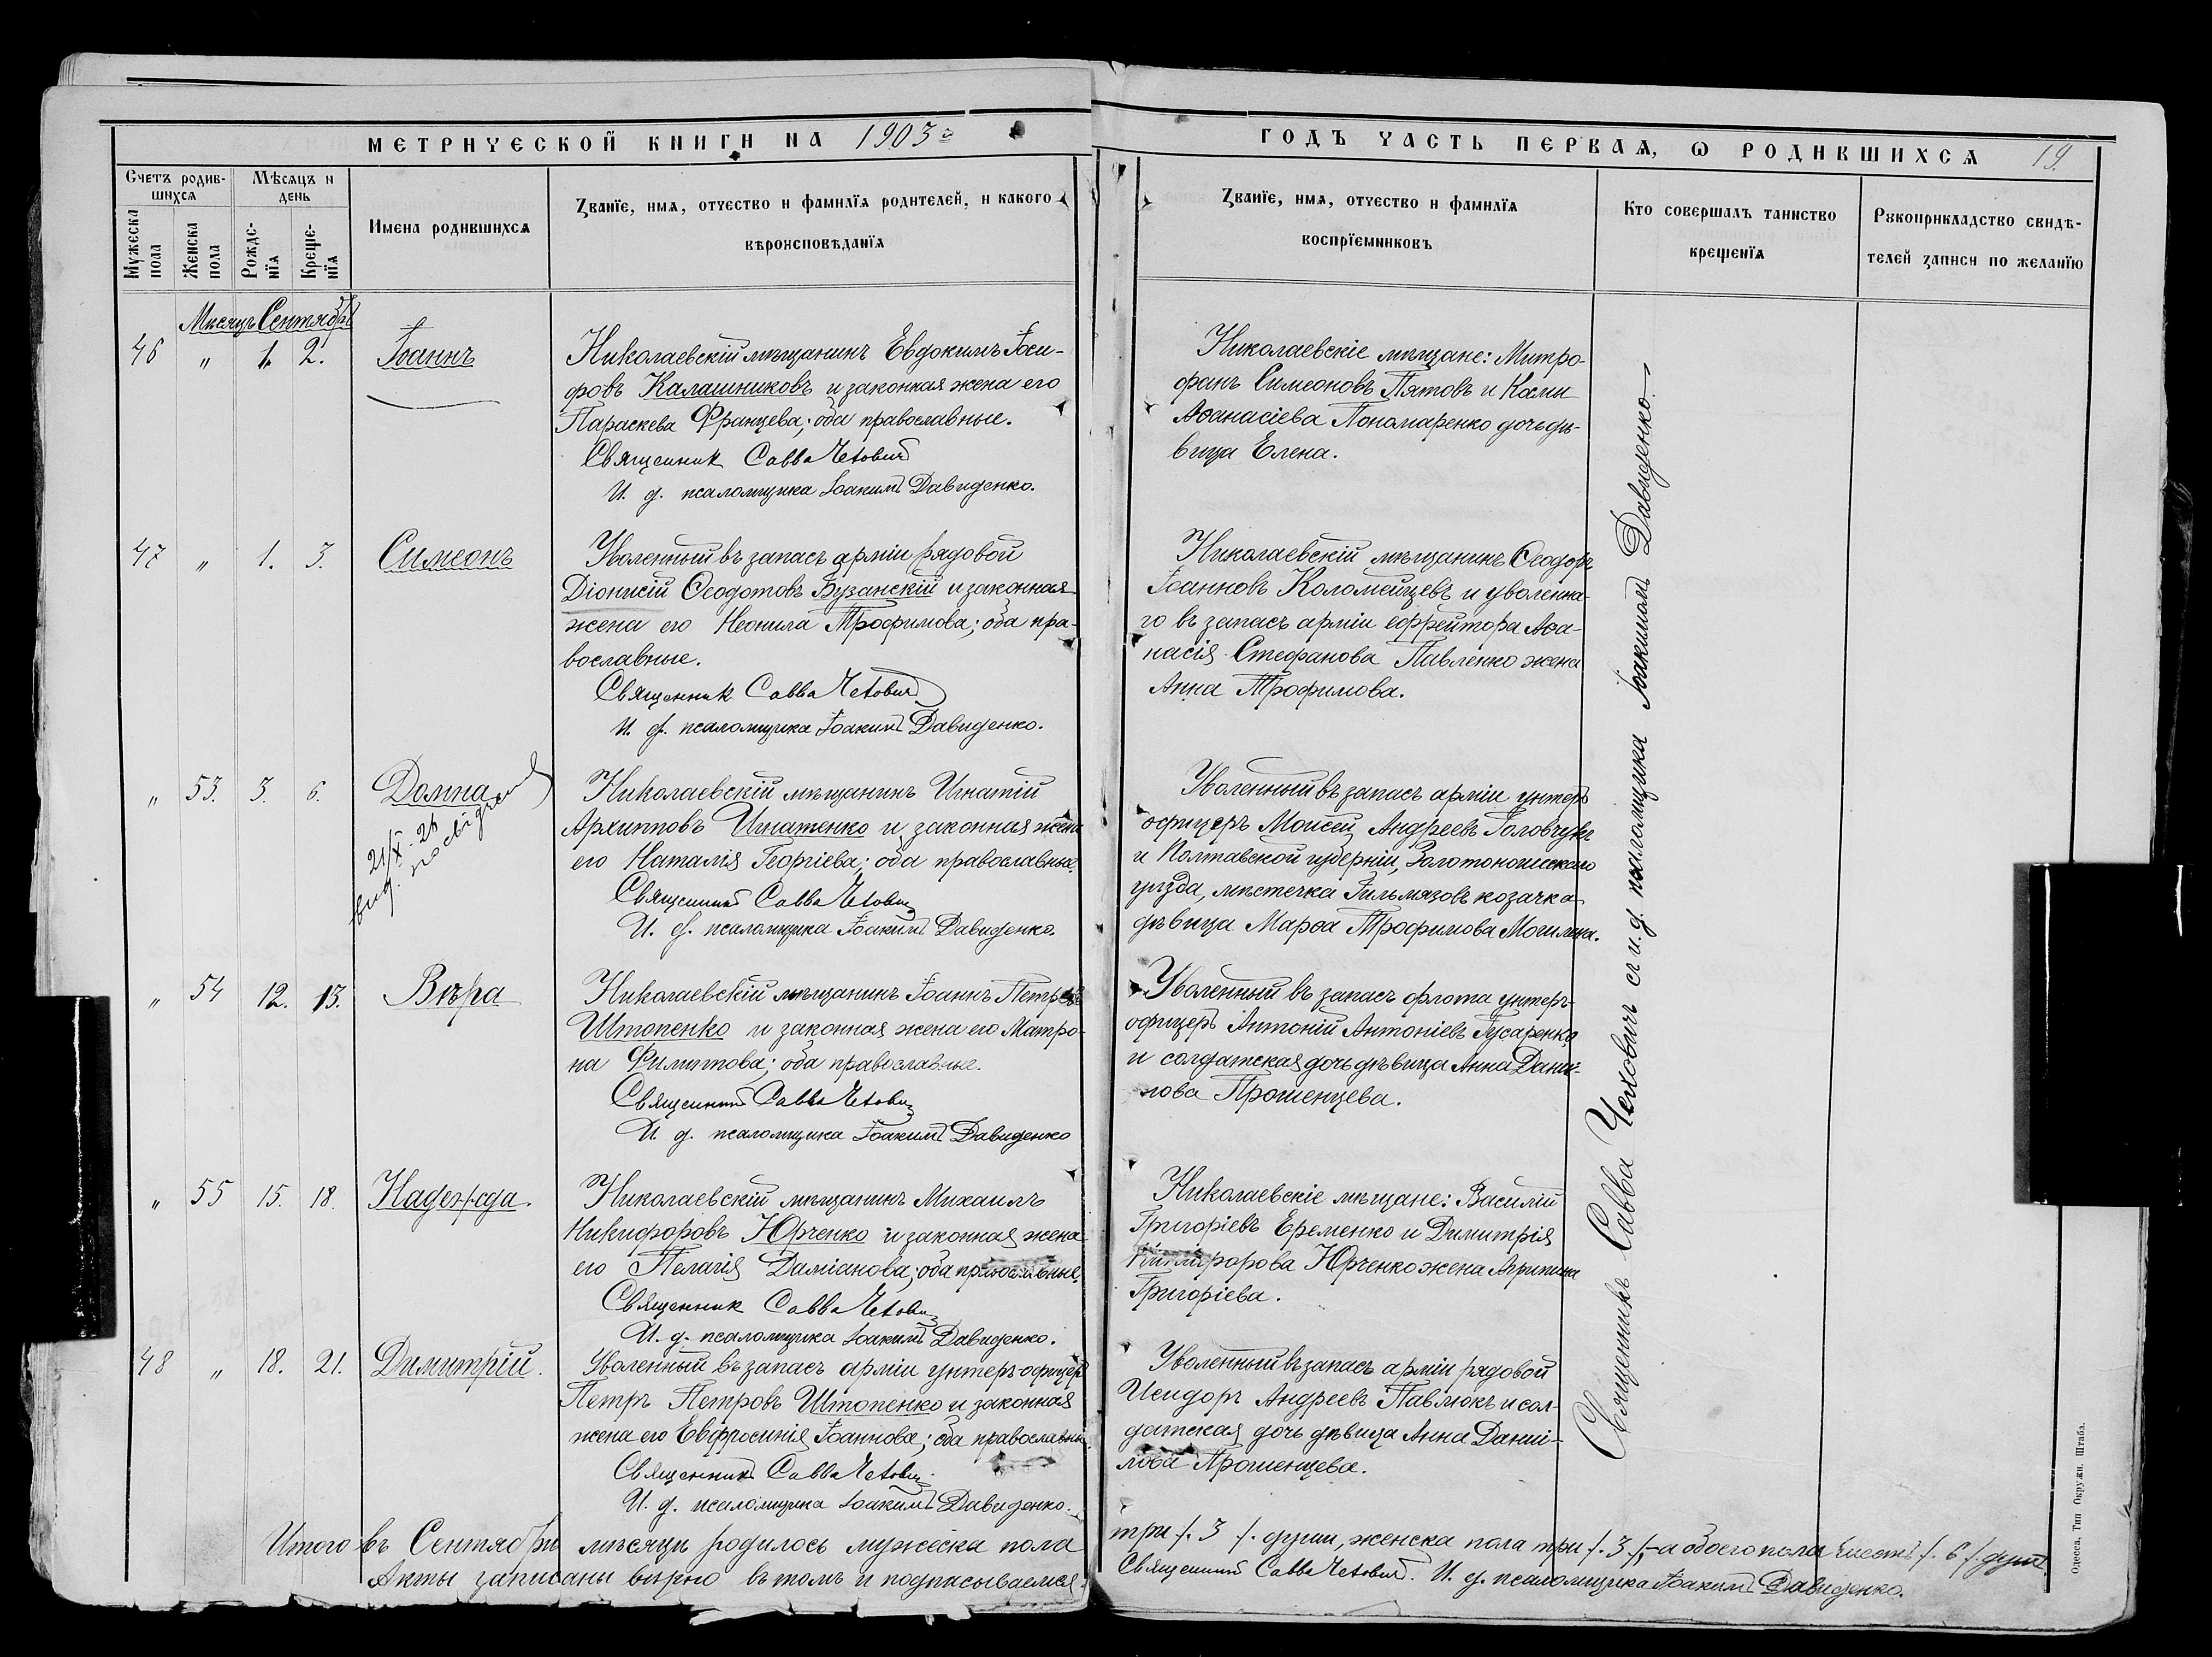 МЕТРИЧЕСКОЙ КНИГИ НА 1903
ГОДЪ ЧАСТЬ ПЕРВАЯ, Ѡ РОДИВШИХСЯ 19.
Счетъ родив-
шихся
Мужеска пола
Женска пола
Мѣсяцъ и
день
Рожде-
нїя
Креще-
нїя
Имена родившихся
Званїе, имя, отчество и фамилїя родителей, и какого
вѣроисповѣданїя
Званїе, имя, отчество и фамилїя
воспрїемниковъ
Кто совершалъ таинство
крещенїя
Рукоприкладство свидѣ-
телей записи по желанїю
Мѣсяцъ Сентябрь
46 " 1. 2. Іоаннъ
Николаевскій мѣщанинъ Евдокимъ Іоси-
фовъ Калашниковъ и законная жена его
Параскева Францева; оба православные.
Священникъ Савва Чехович
И. д. псаломщика Іоакимъ Давиденко.
Николаевскіе мѣщане: Митро-
фанъ Симеоновъ Пятовъ и Космы
Аѳанасіева Пономаренко дочь дѣ-
вица Елена.
47 " 1. 3. Симеонъ
Уволенный въ запасъ арміи рядовой
Діонисій Ѳеодотовъ Бузанскій и законная
жена его Неонила Трофимова; оба пра-
вославные.
Священникъ Савва Чехович
И. д. псаломщика Іоакимъ Давиденко.
Николаевскій мѣщанинъ Ѳеодоръ
Іоанновъ Коломейцевъ и уволенна-
го въ запасъ арміи ефрейтора Аѳа-
насія Стефанова Павленко жена
Анна Трофимова.
" 53. 3. 6. Домна
21/X-26
выд. посвід
Николаевскій мѣщанинъ Игнатій
Архипповъ Игнатенко и законная жена
его Наталія Георгіева; оба православные.
Священникъ Савва Чехович
И. д. псаломщика Іоакимъ Давиденко.
Уволенный въ запасъ арміи унтеръ
офицеръ Моисей Андреевъ Головчукъ
и Полтавской губерніи, Золотоношскаго
уѣзда, мѣстечка Гильмязовъ козачка
дѣвица Марѳа Трофимова Могилина.
" 54 12. 13. Вѣра
Николаевскій мѣщанинъ Іоаннъ Петровъ
Штопенко и законная жена его Матро-
на Филиппова; оба православные.
Священникъ Савва Чехович
И. д. псаломщика Іоакимъ Давиденко
Уволенный въ запасъ флота унтеръ-
офицеръ Антоній Антоніевъ Гусаренко
и солдатская дочь дѣвица Анна Дани-
лова Прошенцева.
" 55 15. 18. Надежда.
Николаевскій мѣщанинъ Михаилъ
Никифоровъ Юрченко и законная жена
его Пелагія Даміанова; оба православные
Священникъ Савва Чехович
И. д. псаломщика Іоакимъ Давиденко.
Николаевскіе мѣщане: Василій
Григоріевъ Еременко и Димитрія
Никифорова Юрченко жена Агрипина
Григоріева.
48 " 18. 21. Димитрій.
Уволенный въ запасъ арміи унтеръ-офицеръ
Петръ Петровъ Штопенко и законная
жена его Евфросинія Іоаннова; оба православные
Священникъ Савва Чехович.
И. д. псаломщика Іоакимъ Давиденко.
Уволенный въ запасъ арміи рядовой
Исидоръ Андреевъ Павлюкъ и сол-
датская дочь дѣвица Анна Даніи-
лова Прошенцева.
Священникъ Савва Чеховичъ съ и. д. псаломщика Іоакимомъ Давиденко.
Итого въ Сентябрѣ мѣсяцѣ родилось мужеска пола
три /. 3 /. души, женска пола три /. 3 /,-а обоего пола шесть /. 6 /. душъ.
Акты записаны вѣрно въ томъ и подписываемся:
Священникъ Савва Чехович. И. д. псаломщика Іоакимъ Давиденко.
Одесса, Тип Окружн. Штаба.